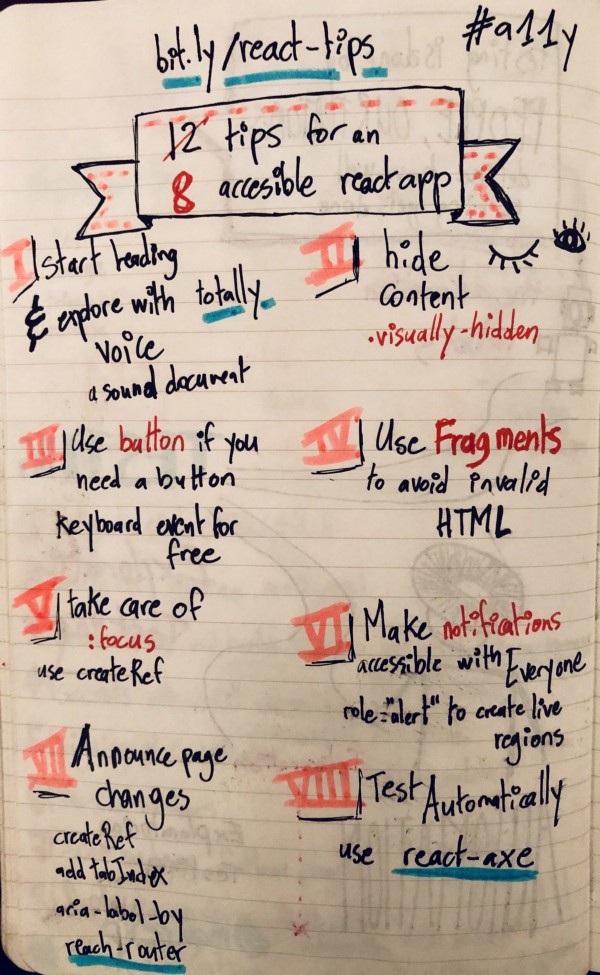 #a11y
bit.ly/react-tips
12 tips for an
8 accesible react app
I start reading
& explore with totally
voice
a sound document
II hide
content
.visually-hidden
III Use button if you
need a button
keyboard event for
free
IV Use Fragments
to avoid invalid
HTML
V take care of
:focus
use createRef
VI Make notifications
accessible with Everyone
role="alert" to create live
regions
VII Announce page
changes
createRef
add tabIndex
aria-label-by
reach-router
VIIII Test Automatically
use react-axe